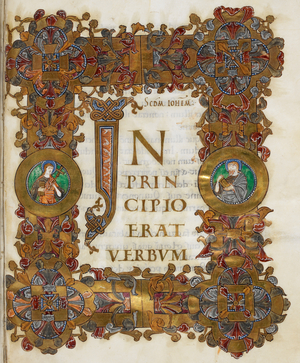 SCDM IOHEM:
IN
PRIN
CIPIO
ERAT
VERBUM